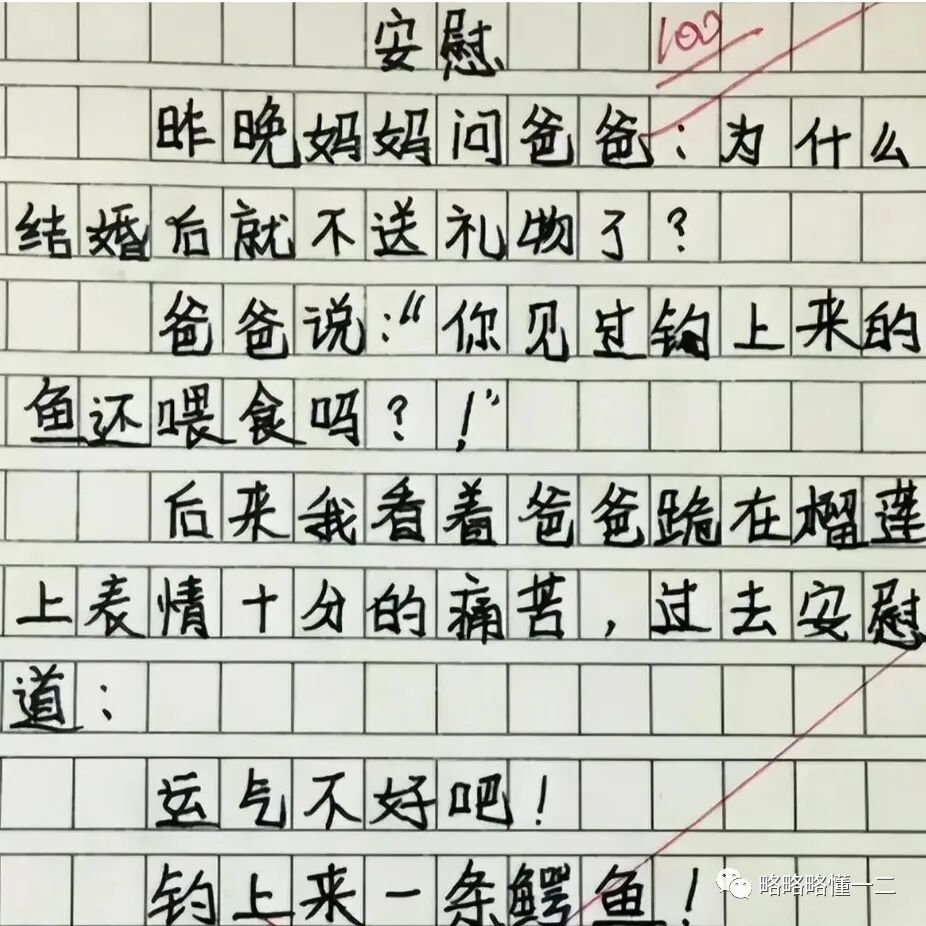 安慰
100
昨晚妈妈问爸爸:为什么
结婚后就不送礼物了?
爸爸说:“你见过钓上来的
鱼还喂食吗?!”
后来我看着爸爸跪在榴莲
上表情十分的痛苦,过去安慰
道:
运气不好吧!
钓上来一条鳄鱼!
略略略懂一二